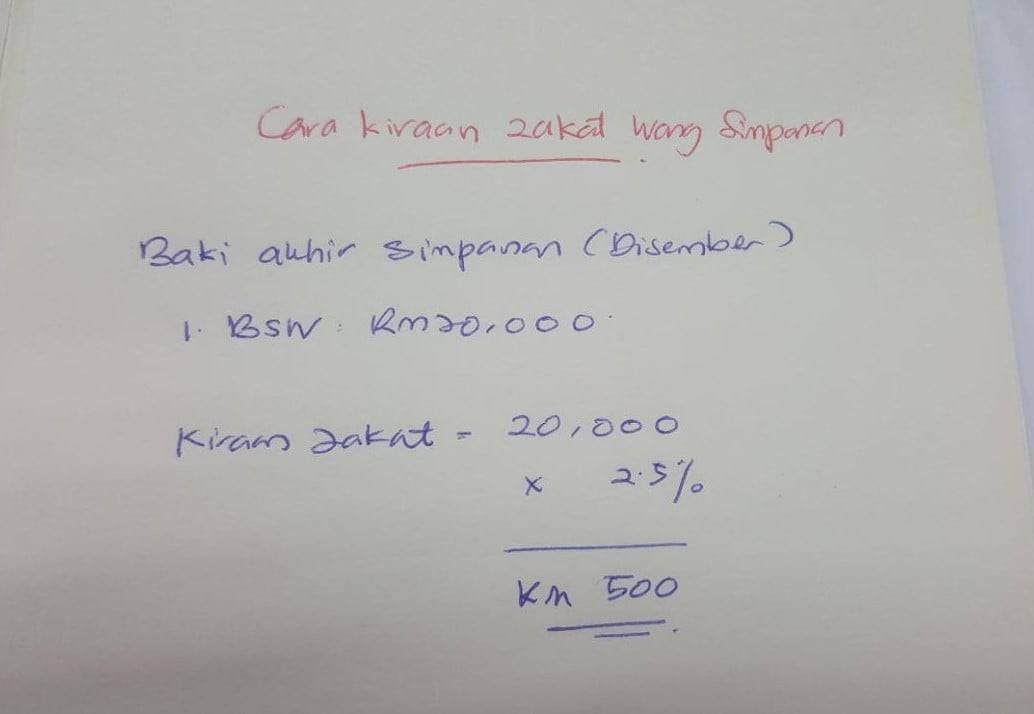 Cara kiraan zakat wang Simpanan
Baki akhir simpanan (Disember)
1. BSN : RM20,000.
Kiraan zakat = 20,000
x 2.5%
RM 500